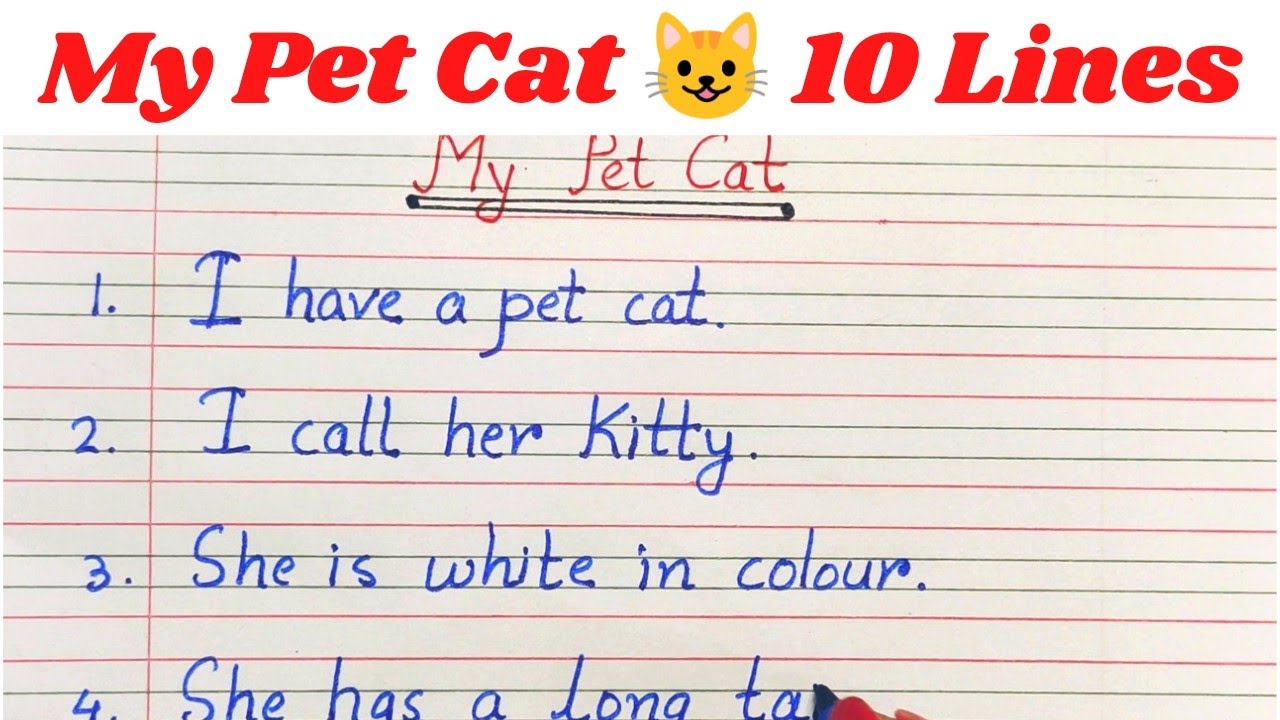 My Pet Cat 🐱 10 Lines
My Pet Cat
1. I have a pet cat.
2. I call her Kitty.
3. She is white in colour.
4. She has a long ta